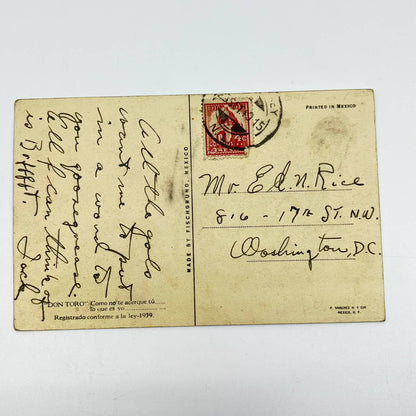 All the gobs
want me to put
in a word to
you
All I can think of
is Bo!!!
Jack
"DON TORO" Como no te acerque tú.....
lo que es yo
Registrado conforme a la ley-1939.
MADE BY FISCHGRUND, MEXICO
PRINTED IN MEXICO
15
Mr. E. d. N. Rice
816 - 17th ST. N.W.
Washington, D.C.
F. SANCHEZ H. Y CIA
MEXICO, D. F.